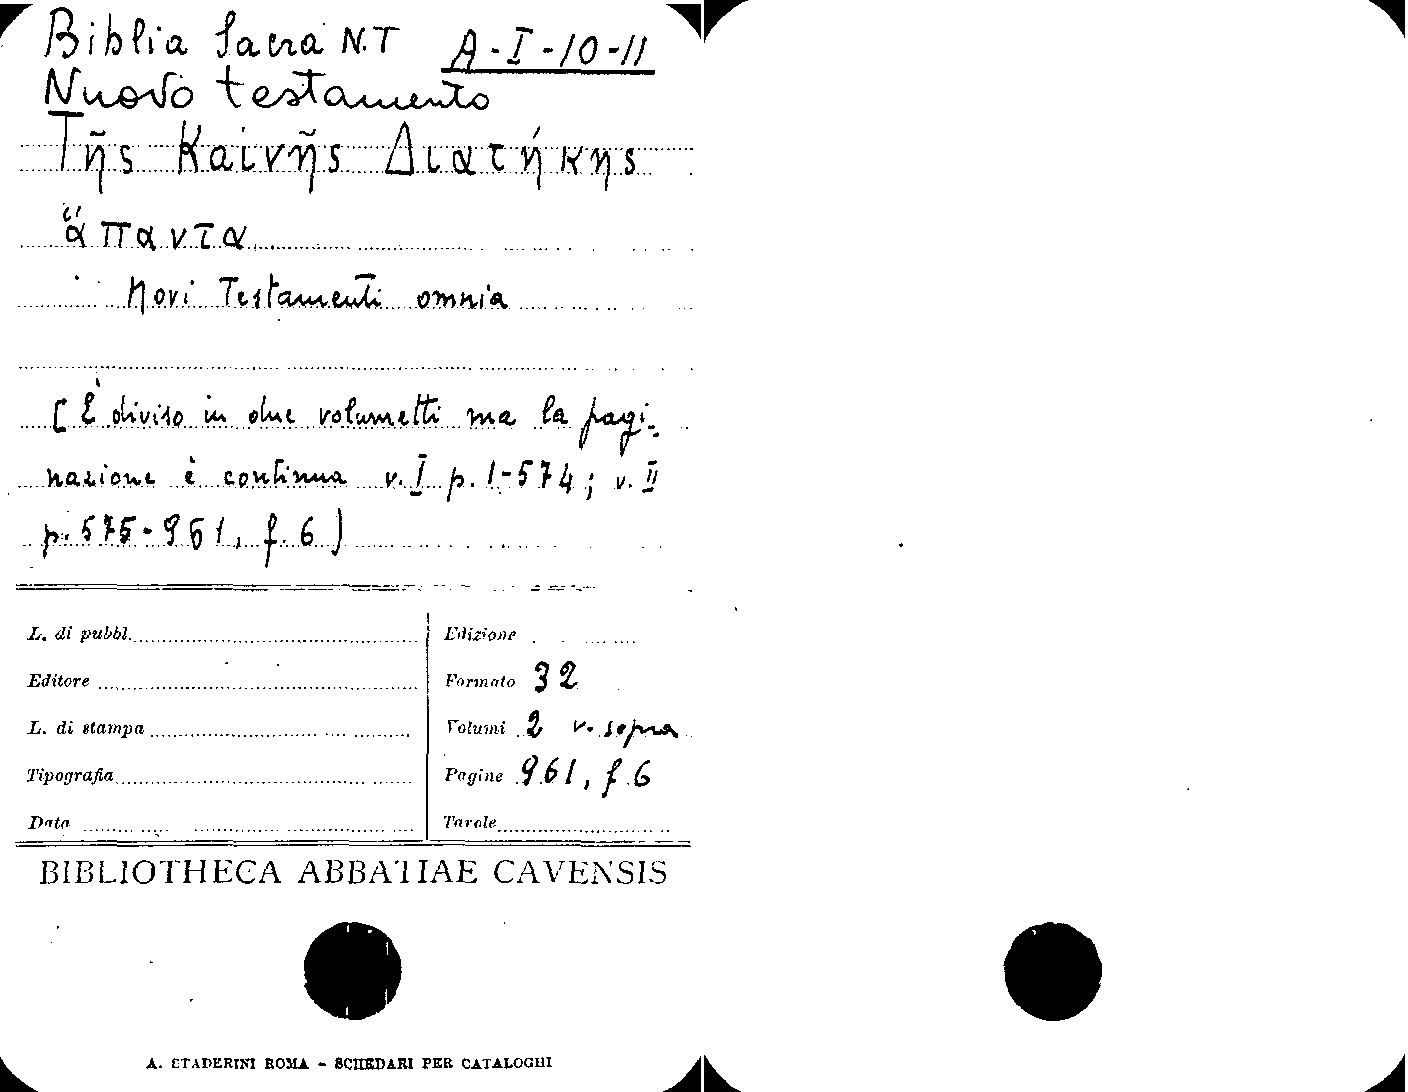 Biblia Sacra N.T A-I-10-11
Nuovo testamento
Τῆς Καινῆς Διατήκης
ἅπαντα
Novi Testamenti omnia
[È diviso in due volumetti ma la pagi-
nazione è continua v. I p. 1-574; v. II
p. 575-961, f. 6)
L. di pubbl. Edizione
Editore Formato 32
L. di stampa Volumi 2 v. sopra
Tipografia Pagine 961, f 6
Data Tavole
BIBLIOTHECA ABBATIAE CAVENSIS
A. STADERINI ROMA - SCHEDARI PER CATALOGHI